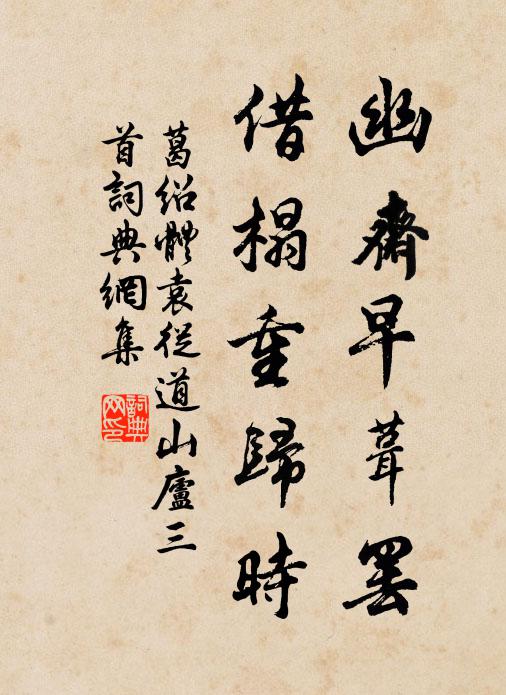 幽齋早葺罷
借榻重歸時
葛紹體袁從道山廬三
首詞典網集
詞典網印